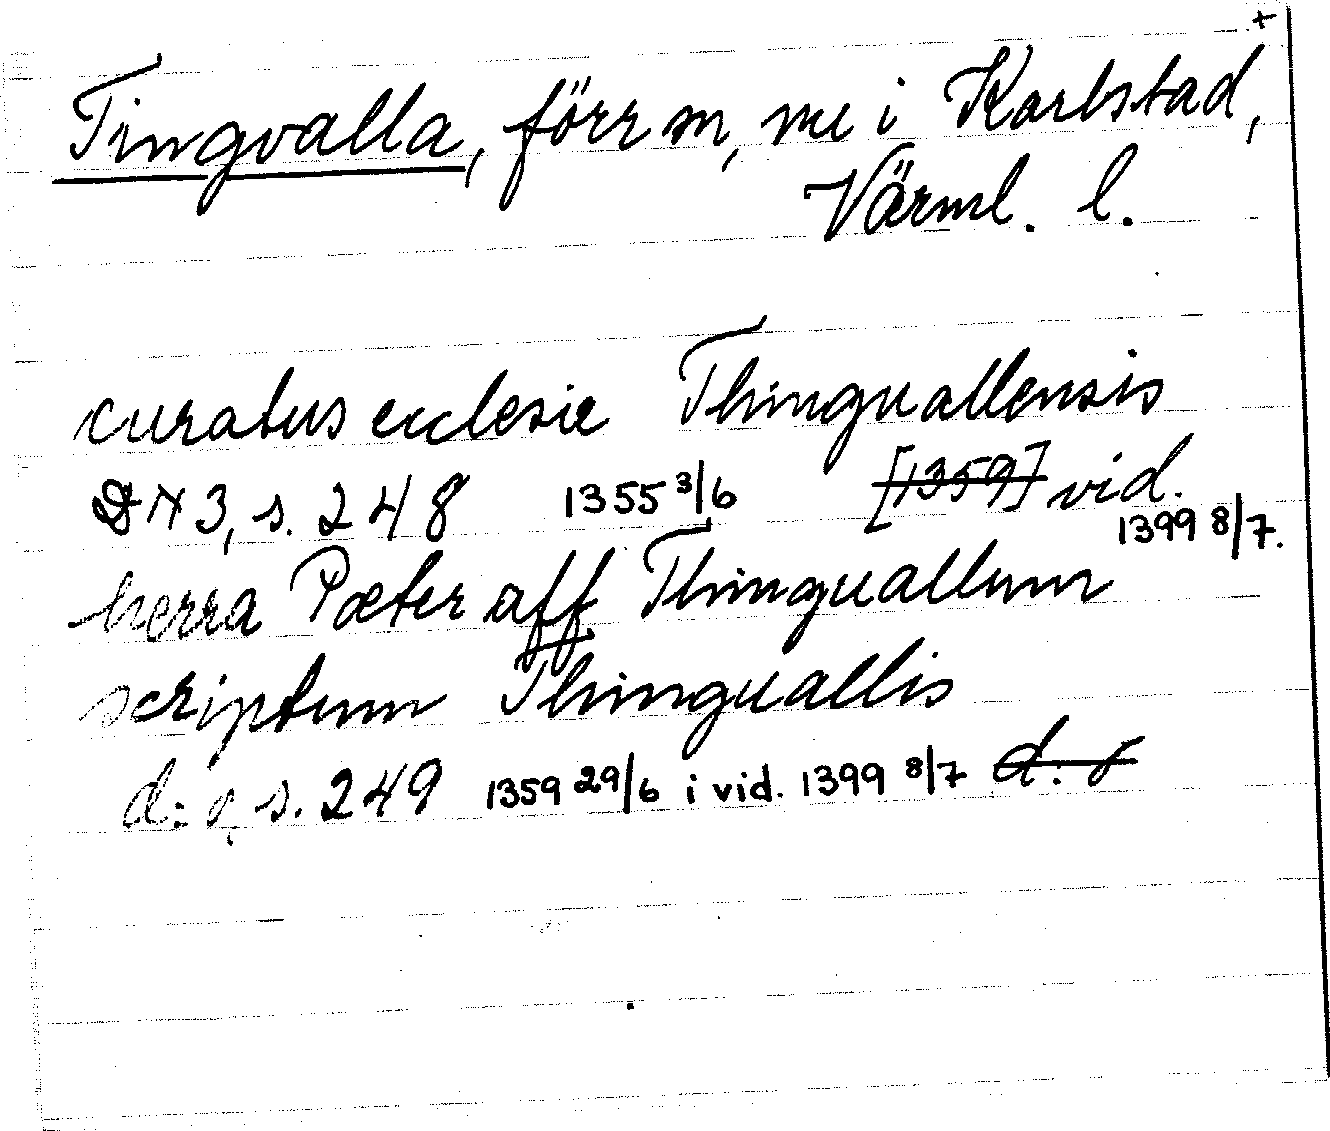 +
Tingvalla, förr sn, nu i Karlstad,
Värml. l.
curatus ecclesie Thinguallensis
DN 3, s. 248 1355 3/6 [1359] vid.
1399 8/7.
herra Pæter aff Thinguallum
scriptum Thinguallis
d:o, s. 249 1359 29/6 i vid. 1399 8/7 d:o